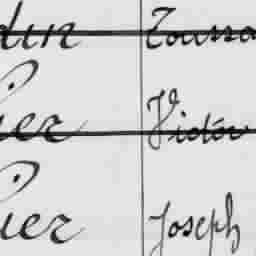 din Toussa
ier Victor
ier Joseph